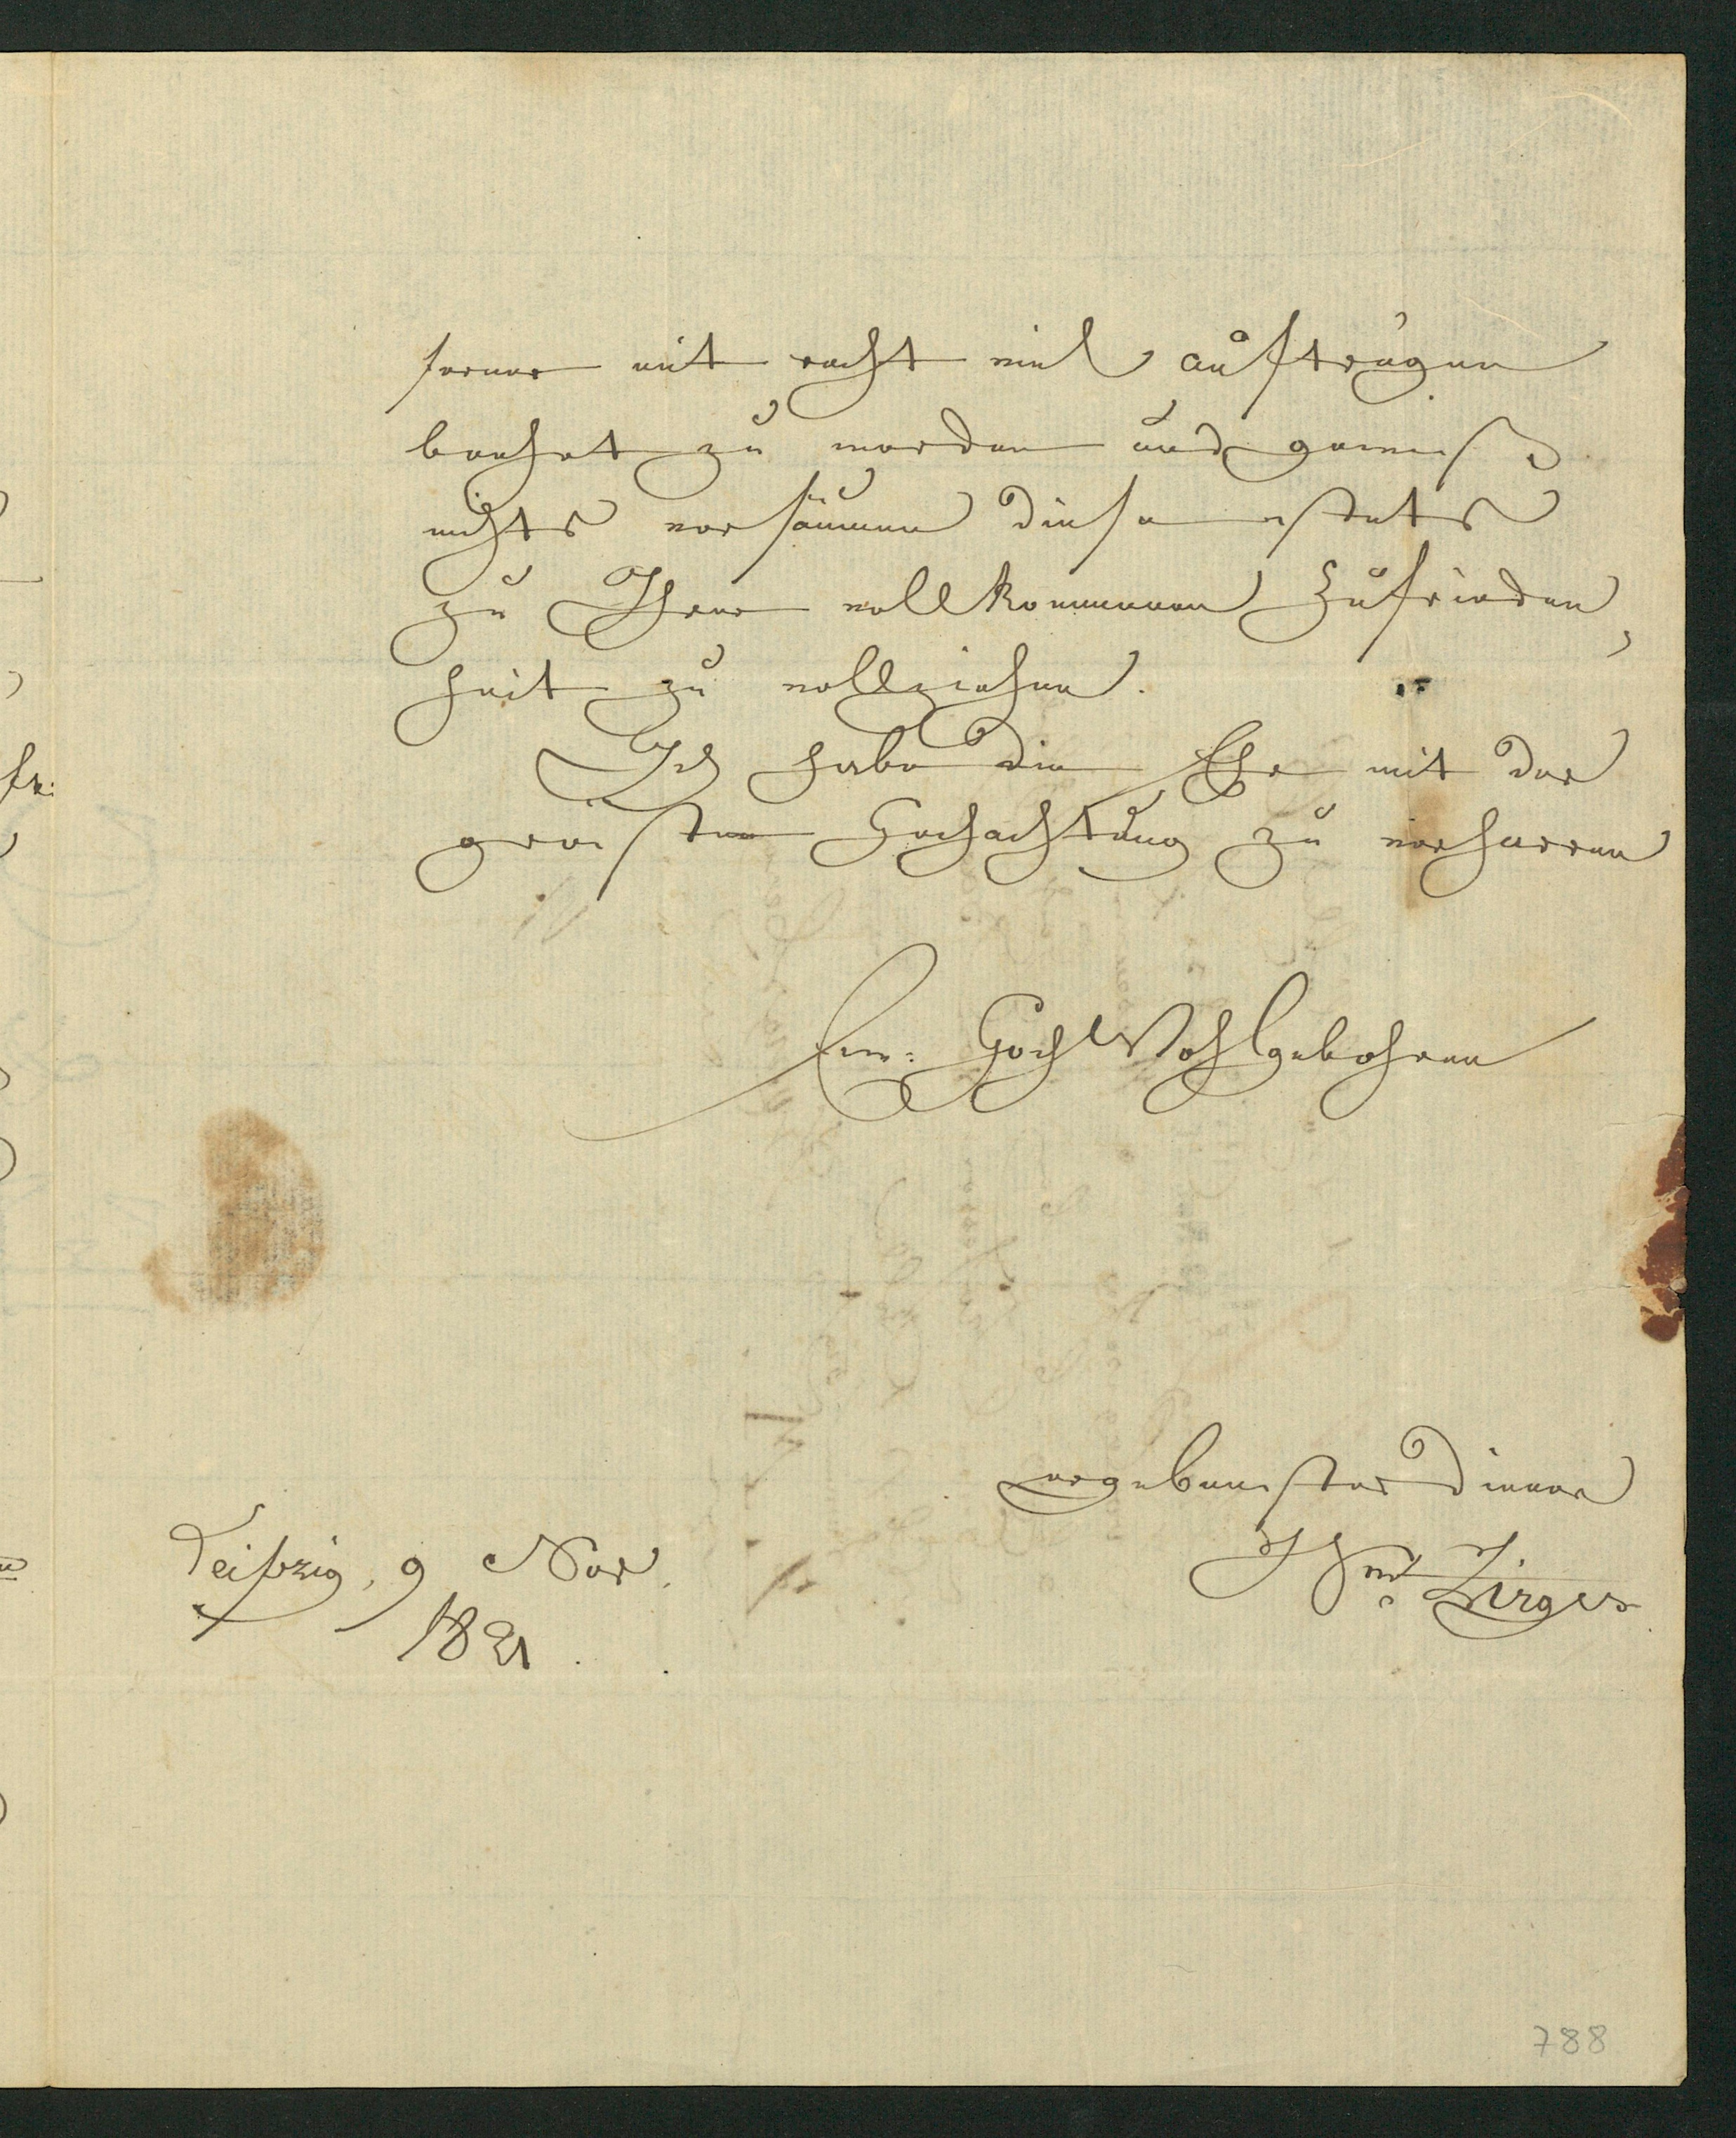 ferner mit recht viel aufträgen
beehrt zu werden und gewiß
nichts versäumen diese stets
zu Ihrer vollkommenen Zufrieden,
heit zu vollziehen.
Ich habe die Ehr mit der
grösten Hochachtung zu verharren
Ew: HochWohlgebohren
ergebenster Diener
Zirges
Leipzig, 9 Nov.
1821.
788